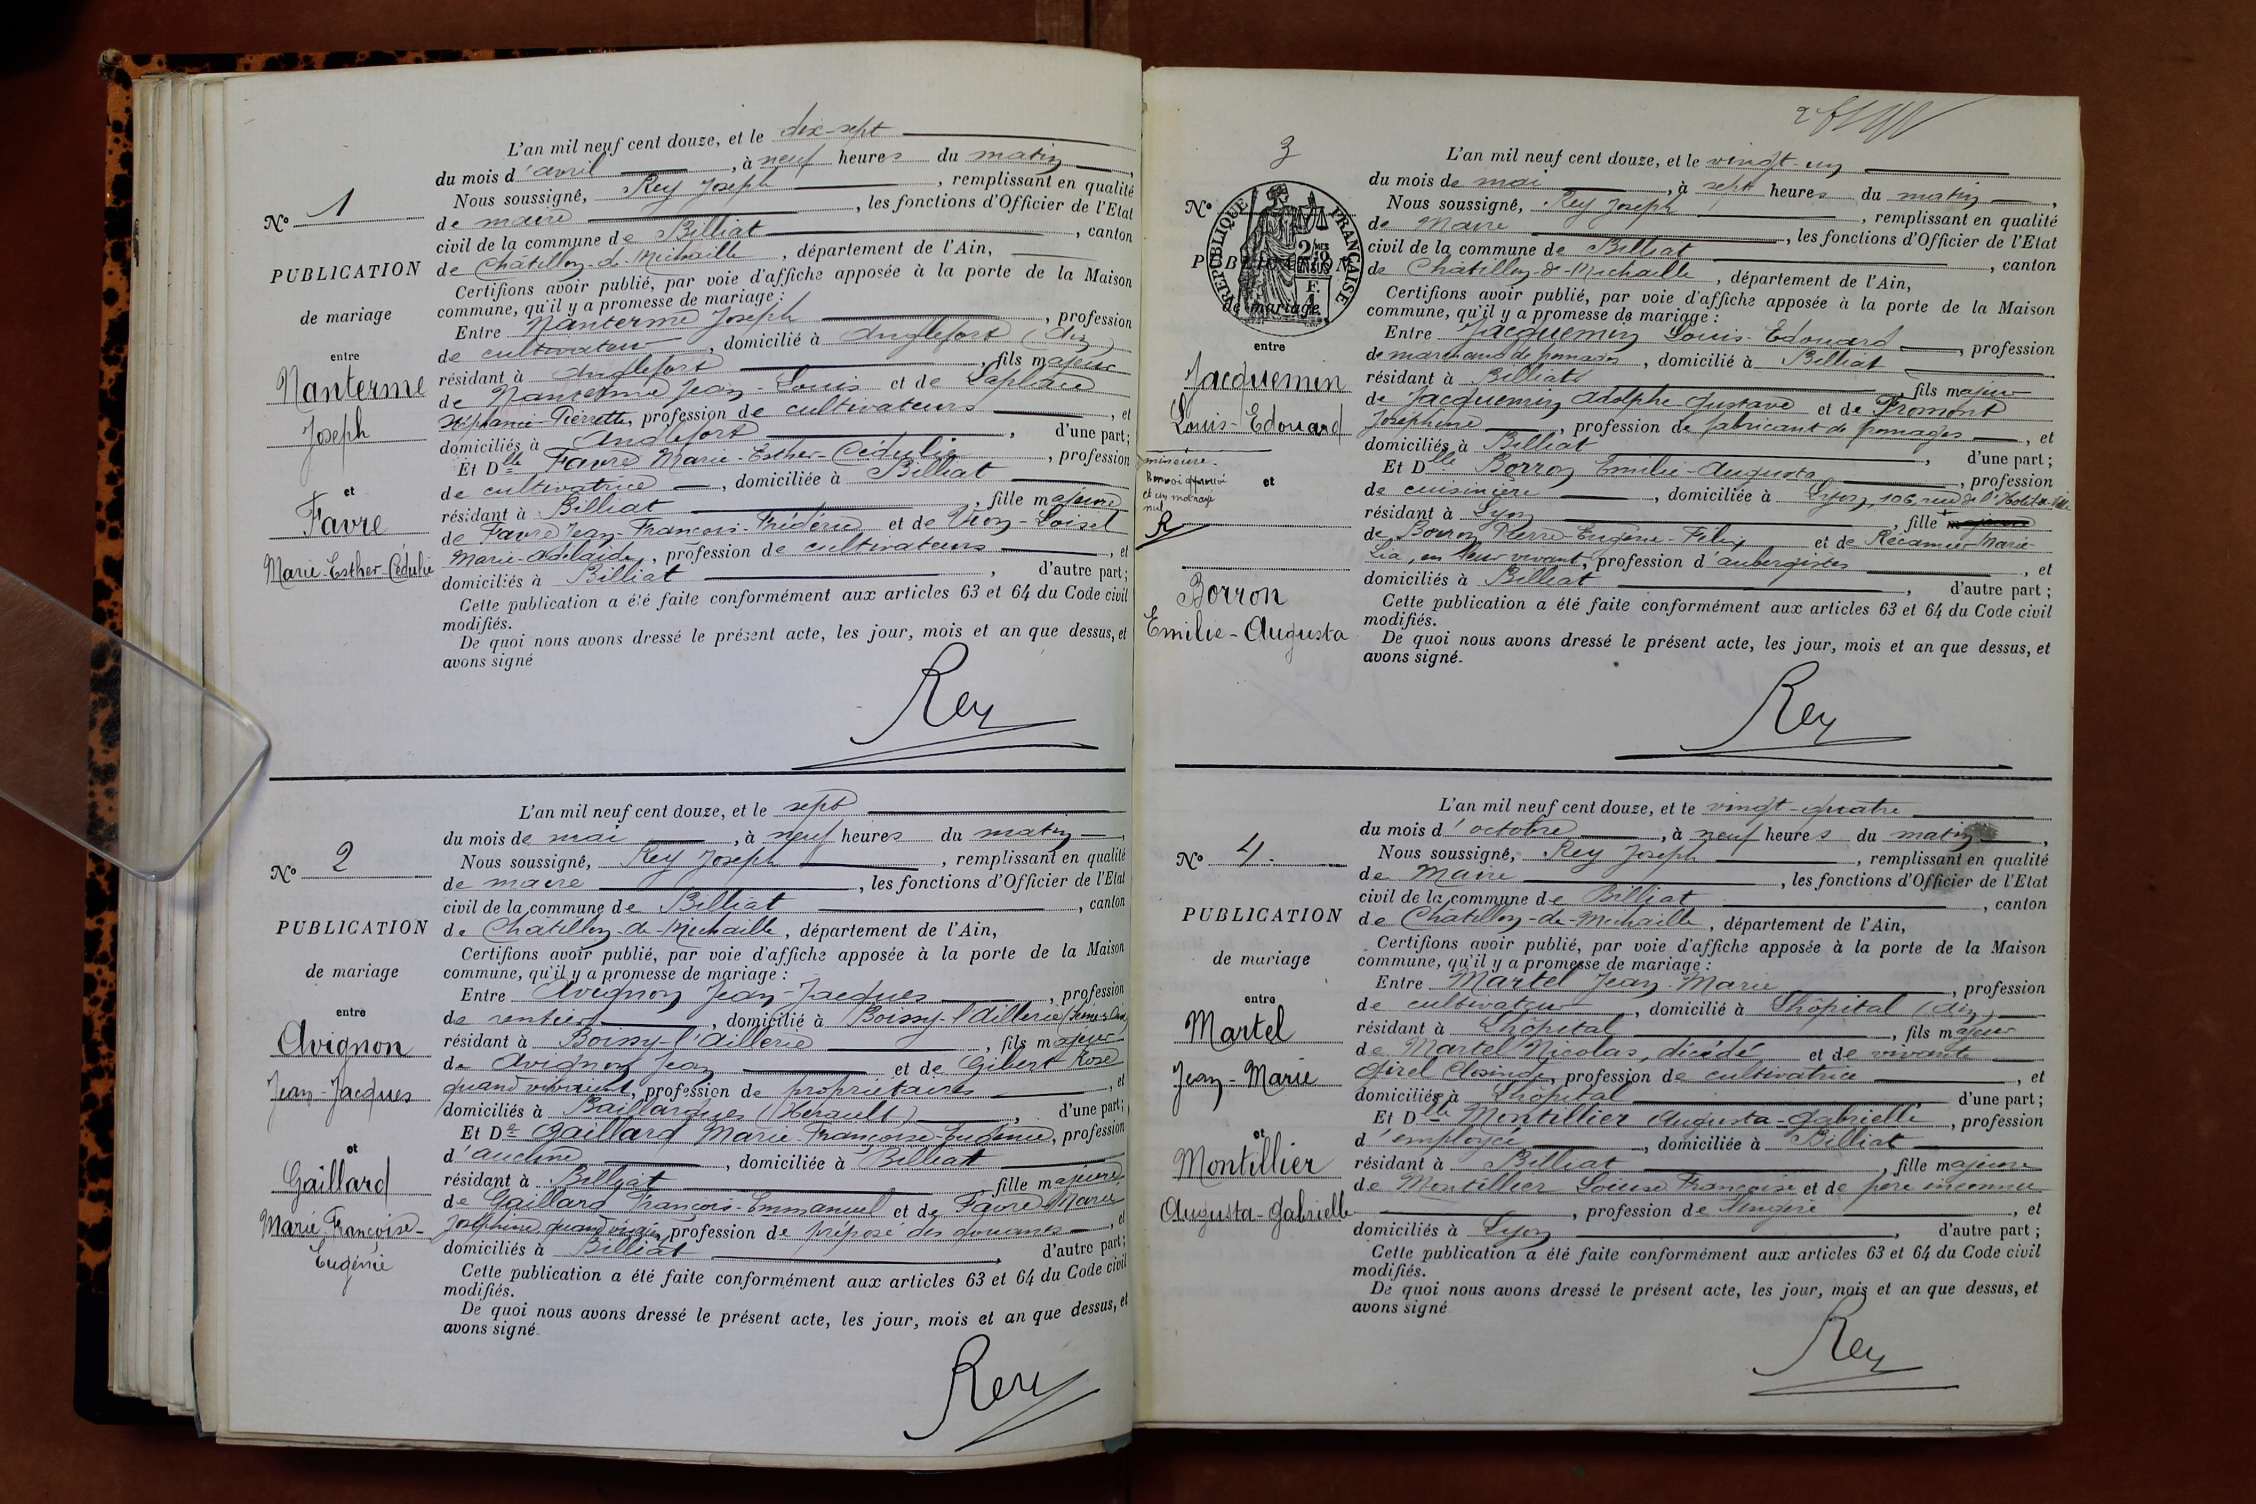 L'an mil neuf cent douze, et le dix-sept
du mois d'avril, à neuf heures du matin,
Nous soussigné, Rey Joseph, remplissant en qualité
de maire, les fonctions d'Officier de l'Etat
civil de la commune de Billiat, canton
de Châtillon-de-Michaille, département de l'Ain,
Certifions avoir publié, par voie d'affiche apposée à la porte de la Maison
commune, qu'il y a promesse de mariage :
Entre Nanterme Joseph, profession
de cultivateur, domicilié à Anglefort (Ain)
résidant à Anglefort, fils majeur
de Nanterme Jean-Louis et de Laplace
Stéphanie-Pierrette, profession de cultivateurs, et
domiciliés à Anglefort, d'une part;
Et Dlle Favre Marie-Esther-Cédulie, profession
de cultivatrice, domiciliée à Billiat
résidant à Billiat, fille majeure
de Favre Jean-François-Frédéric et de Vion-Loisel
Marie-Adelaïde, profession de cultivateurs, et
domiciliés à Billiat, d'autre part;
Cette publication a été faite conformément aux articles 63 et 64 du Code civil
modifiés.
De quoi nous avons dressé le présent acte, les jour, mois et an que dessus, et
avons signé
Rey
No 1
PUBLICATION
de mariage
entre
Nanterme
Joseph
et
Favre
Marie-Esther-Cédulie
L'an mil neuf cent douze, et le sept
du mois de mai, à neuf heures du matin,
Nous soussigné, Rey Joseph, remplissant en qualité
de maire, les fonctions d'Officier de l'Etat
civil de la commune de Billiat, canton
de Chatillon-de-Michaille, département de l'Ain,
Certifions avoir publié, par voie d'affiche apposée à la porte de la Maison
commune, qu'il y a promesse de mariage :
Entre Avignon Jean-Jacques, profession
de rentier, domicilié à Boissy-l'Aillerie
résidant à Boissy-l'Aillerie, fils majeur
de Avignon Jean et de Gibert Rose
quand vivaient, profession de propriétaires, et
domiciliés à Baillargues (Hérault), d'une part;
Et Dlle Gaillard Marie Françoise-Eugénie, profession
d'aucune, domiciliée à Billiat
résidant à Billiat, fille majeure
de Gaillard François-Emmanuel et de Favre Marie
Joséphine, profession de préposé des douanes, et
domiciliés à Billiat, d'autre part;
Cette publication a été faite conformément aux articles 63 et 64 du Code civil
modifiés.
De quoi nous avons dressé le présent acte, les jour, mois et an que dessus, et
avons signé
Rey
No 2
PUBLICATION
de mariage
entre
Avignon
Jean-Jacques
et
Gaillard
Marie Françoise-
Eugénie
2
L'an mil neuf cent douze, et le vingt-un
du mois de mai, à sept heures du matin,
Nous soussigné, Rey Joseph, remplissant en qualité
de Maire, les fonctions d'Officier de l'Etat
civil de la commune de Billiat, canton
de Châtillon-de-Michaille, département de l'Ain,
Certifions avoir publié, par voie d'affiche apposée à la porte de la Maison
commune, qu'il y a promesse de mariage :
Entre Jacquemin Louis-Edouard, profession
de marchand de fromages, domicilié à Billiat
résidant à Billiat, fils majeur
de Jacquemin Adolphe Gustave et de Fromont
Joséphine, profession de fabricant de fromages, et
domiciliés à Billiat, d'une part;
Et Dlle Borron Emilie-Augusta, profession
de cuisinière, domiciliée à Lyon, 106, rue de l'Hôtel de Ville
résidant à Lyon, fille majeure
de Borron Pierre-Eugène-Félix et de Récamier Marie-
Lia, en leur vivant, profession d'aubergistes, et
domiciliés à Billiat, d'autre part;
Cette publication a été faite conformément aux articles 63 et 64 du Code civil
modifiés.
De quoi nous avons dressé le présent acte, les jour, mois et an que dessus, et
avons signé.
Rey
3
No
PUBLICATION
de mariage
RÉPUBLIQUE FRANÇAISE
entre
Jacquemin
Louis-Edouard
mineure.
Renvoi approuvé
et un mot rayé
nul
R
et
Borron
Emilie-Augusta
L'an mil neuf cent douze, et le vingt-quatre
du mois d'octobre, à neuf heures du matin,
Nous soussigné, Rey Joseph, remplissant en qualité
de Maire, les fonctions d'Officier de l'Etat
civil de la commune de Billiat, canton
de Châtillon-de-Michaille, département de l'Ain,
Certifions avoir publié, par voie d'affiche apposée à la porte de la Maison
commune, qu'il y a promesse de mariage :
Entre Martel Jean-Marie, profession
de cultivateur, domicilié à Lhôpital (Ain)
résidant à Lhôpital, fils majeur
de Martel Nicolas, décédé et de vivante
Girel Closinde, profession de cultivatrice, et
domiciliés à Lhôpital, d'une part;
Et Dlle Montillier Augusta-Gabrielle, profession
d'employée, domiciliée à Billiat
résidant à Billiat, fille majeure
de Montillier Louise Françoise et de père inconnu
, profession de lingère, et
domiciliés à Lyon, d'autre part;
Cette publication a été faite conformément aux articles 63 et 64 du Code civil
modifiés.
De quoi nous avons dressé le présent acte, les jour, mois et an que dessus, et
avons signé
Rey
No 4.
PUBLICATION
de mariage
entre
Martel
Jean-Marie
et
Montillier
Augusta-Gabrielle